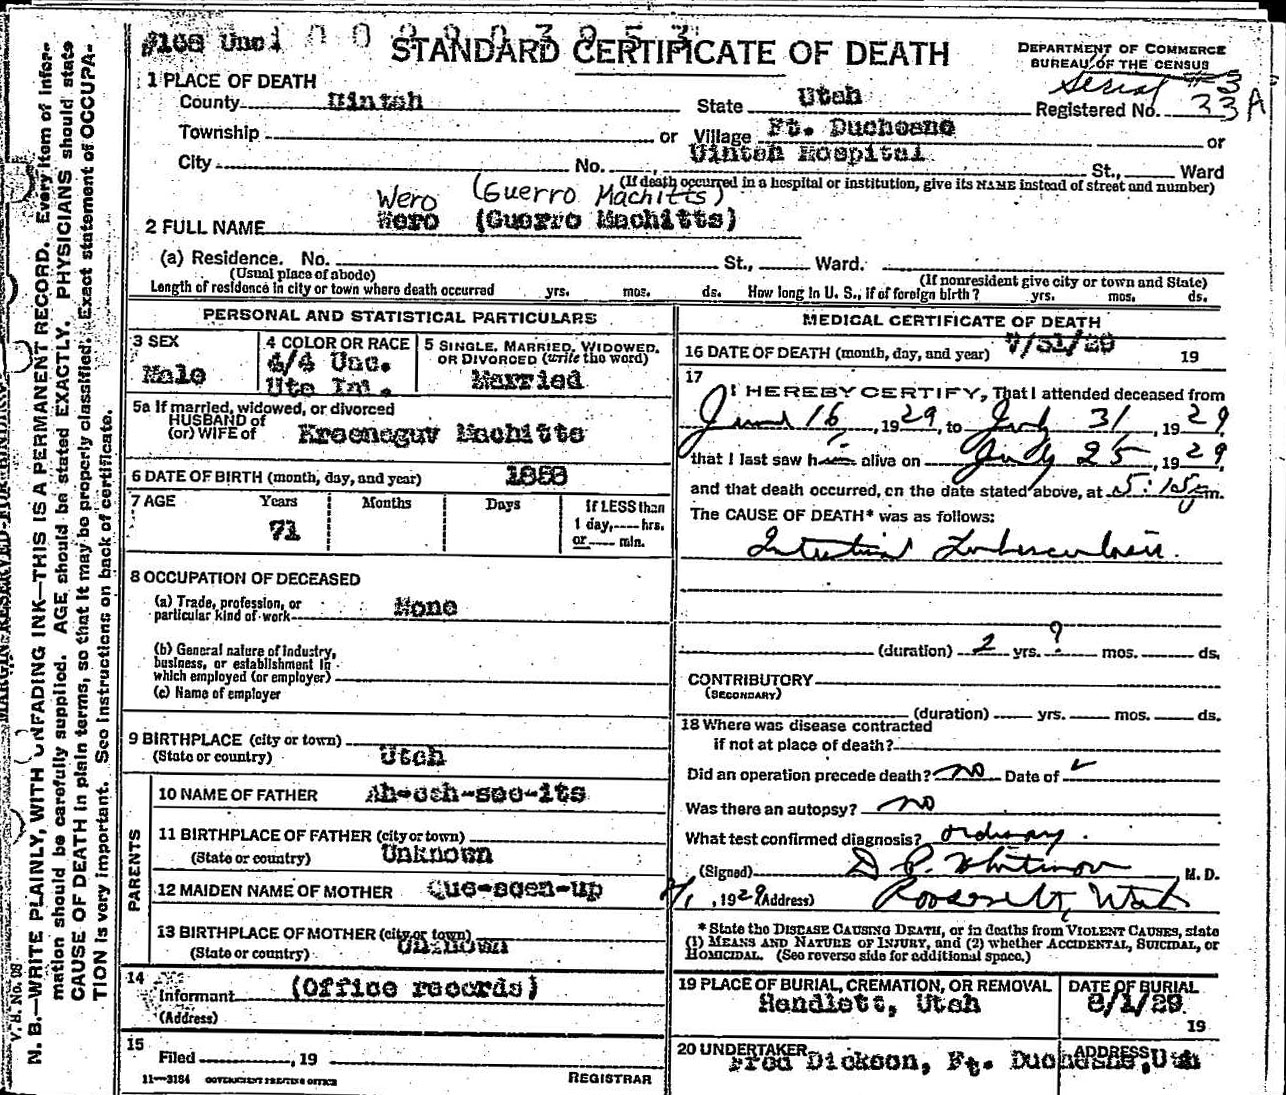 #108 Unc.
STANDARD CERTIFICATE OF DEATH
DEPARTMENT OF COMMERCE
BUREAU OF THE CENSUS
Serial #3
Registered No. 33A
1 PLACE OF DEATH
County Uintah State Utah
Township or Village Ft. Duchesne or
City No. Uintah Hospital St., Ward
(If death occurred in a hospital or institution, give its NAME instead of street and number)
Wero (Guerro Machitts)
2 FULL NAME Wero (Guerro Machitts)
(a) Residence. No. St., Ward.
(Usual place of abode) (If nonresident give city or town and State)
Length of residence in city or town where death occurred yrs. mos. ds. How long in U. S., if of foreign birth? yrs. mos. ds.
PERSONAL AND STATISTICAL PARTICULARS
3 SEX
Male
4 COLOR OR RACE
4/4 Unc.
Ute Ind.
5 SINGLE, MARRIED, WIDOWED,
OR DIVORCED (write the word)
Married
5a If married, widowed, or divorced
HUSBAND of
(or) WIFE of Kroeneguv Machitts
6 DATE OF BIRTH (month, day, and year) 1858
7 AGE Years Months Days If LESS than
1 day, hrs.
or min.
71
8 OCCUPATION OF DECEASED
(a) Trade, profession, or
particular kind of work None
(b) General nature of industry,
business, or establishment in
which employed (or employer)
(c) Name of employer
9 BIRTHPLACE (city or town)
(State or country) Utah
PARENTS
10 NAME OF FATHER Ah-oah-see-its
11 BIRTHPLACE OF FATHER (city or town)
(State or country) Unknown
12 MAIDEN NAME OF MOTHER Que-seen-up
13 BIRTHPLACE OF MOTHER (city or town)
(State or country) Unknown
14
Informant (Office records)
(Address)
15
Filed , 19
REGISTRAR
11—3184 GOVERNMENT PRINTING OFFICE
MEDICAL CERTIFICATE OF DEATH
16 DATE OF DEATH (month, day, and year) 7/31/29 19
17
I HEREBY CERTIFY, That I attended deceased from
June 16, 1929, to July 31, 1929
that I last saw him alive on July 25, 1929
and that death occurred, on the date stated above, at 5:15 m.
The CAUSE OF DEATH* was as follows:
Intestinal Tuberculosis.
(duration) 2 yrs. ? mos. ds.
CONTRIBUTORY
(SECONDARY)
(duration) yrs. mos. ds.
18 Where was disease contracted
if not at place of death?
Did an operation precede death? no Date of
Was there an autopsy? no
What test confirmed diagnosis? ordinary.
(Signed) D P. Whitmore M. D.
8/1, 1929 (Address) Roosevelt, Utah
* State the DISEASE CAUSING DEATH, or in deaths from VIOLENT CAUSES, state
(1) MEANS AND NATURE OF INJURY, and (2) whether ACCIDENTAL, SUICIDAL, or
HOMICIDAL. (See reverse side for additional space.)
19 PLACE OF BURIAL, CREMATION, OR REMOVAL
Randlett, Utah
DATE OF BURIAL
8/1/29
19
20 UNDERTAKER
ADDRESS
Fred Dickson, Ft. Duchesne, Utah
V. S. No. 98
N. B.—WRITE PLAINLY, WITH UNFADING INK—THIS IS A PERMANENT RECORD. Every item of infor-
mation should be carefully supplied. AGE should be stated EXACTLY. PHYSICIANS should state
CAUSE OF DEATH in plain terms, so that it may be properly classified. Exact statement of OCCUPA-
TION is very important. See instructions on back of certificate.